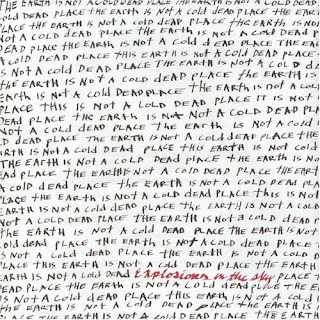 THE EARTH IS NOT A COLD DEAD PLACE THE EARTH IS NOT A COLD DEAD
OLD DEAD PLACE THE EARTH IS NOT A COLD DEAD PLACE THE EARTH
NOT A COLD DEAD PLACE THE EARTH IS NOT A COLD DEAD PLACE
DEAD PLACE THE EARTH IS NOT A COLD DEAD PLACE THE EAR
A COLD DEAD PLACE THIS EARTH IS NOT A COLD DEAD PLACE
IS NOT A COLD DEAD PLACE THE EARTH IS NOT A COLD DEAD
THE EARTH IS NOT A COLD DEAD PLACE THE EARTH IS NOT
EARTH IS NOT A COLD DEAD PLACE THE EARTH IS NOT A COLD
PLACE THIS EARTH IS NOT A COLD DEAD PLACE IT IS NOT
DEAD PLACE THE EARTH IS NOT A COLD DEAD PLACE THE EARTH
NOT A COLD DEAD PLACE THE EARTH IS NOT A COLD DEAD
LD DEAD PLACE THE EARTH IS NOT A COLD DEAD PLACE THE EARTH
RTH IS NOT A COLD DEAD PLACE THIS EARTH IS NOT COLD
THE EARTH IS NOT A COLD DEAD PLACE THE EARTH IS NOT A
EAD PLACE THE EARTH IS NOT A COLD DEAD PLACE THE EARTH
A COLD DEAD PLACE THE EARTH IS NOT A COLD DEAD PLA
PLACE THE EARTH IS NOT A COLD DEAD PLACE THIS IS NOT
EARTH IS NOT A COLD DEAD PLACE THE EARTH IS NOT A COLD
NOT A COLD DEAD PLACE THE EARTH IS NOT A COLD DEAD PLACE
THE EARTH IS NOT A COLD DEAD PLACE THE EARTH IS NOT
OLD DEAD PLACE THE EARTH IS NOT A COLD DEAD PLACE
PLACE THIS EARTH IS NOT A COLD DEAD PLACE THE EARTH
EARTH IS NOT A COLD DEAD Explosions in the sky PLACE T
DEAD PLACE THE EARTH IS NOT A COLD DEAD PLACE THE EARTH
IS NOT A COLD DEAD PLACE THIS EARTH IS NOT A COLD
THE EARTH IS NOT A COLD DEAD PLACE THE EARTH IS N